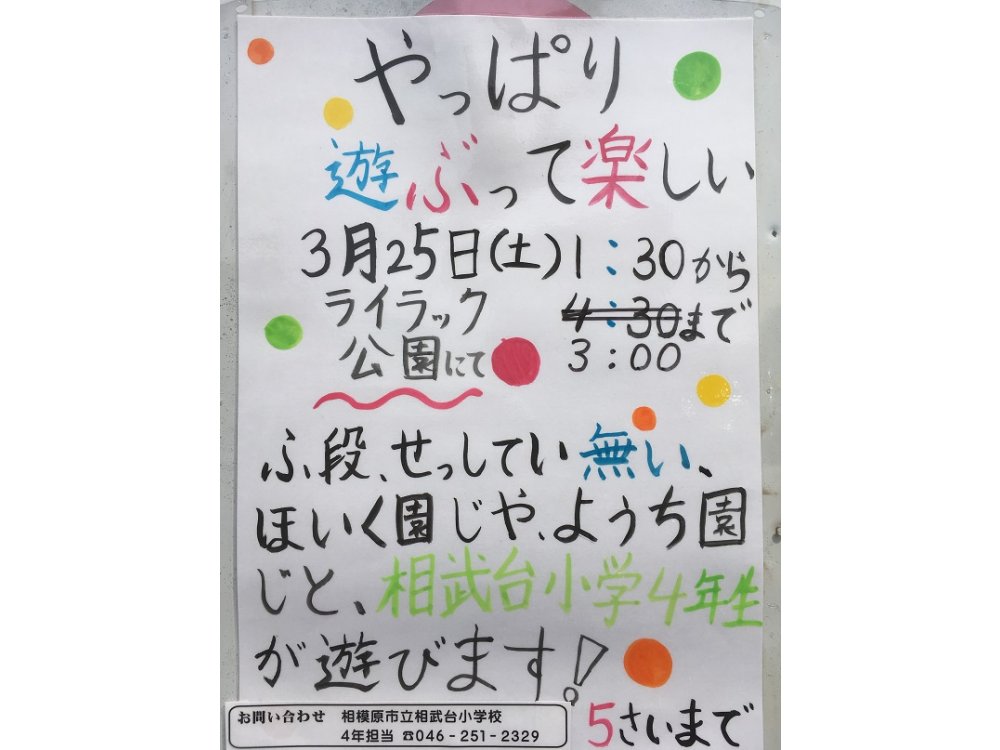 やっぱり
遊ぶって楽しい
3月25日(土)1:30から
ライラック 4:30まで
公園にて 3:00
ふ段、せっしてい無い、
ほいく園じや、ようち園
じと、相武台小学4年生
が遊びます!
5さいまで
お問い合わせ 相模原市立相武台小学校
4年担当 ☎046-251-2329